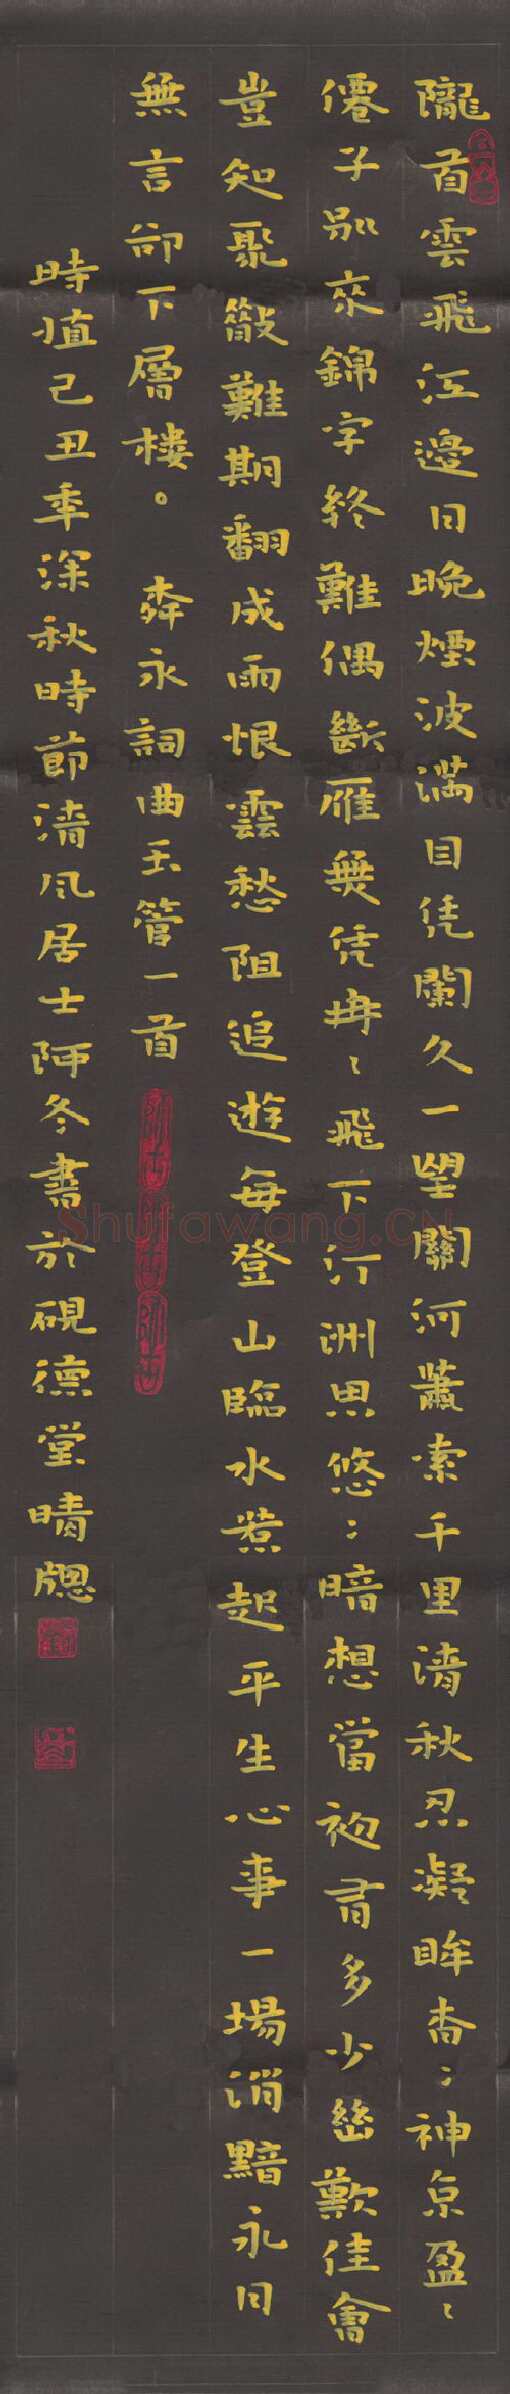 隴首雲飛江邊日晚煙波滿目凭闌久一望關河蕭索千里清秋忍凝眸杳〻神京盈〻
僊子別來錦字終難偶斷雁無凭冉〻飛下汀洲思悠〻暗想當初有多少幽歡佳會
豈知聚散難期翻成雨恨雲愁阻追遊每登山臨水惹起平生心事一場消黯永日
無言卻下層樓。 柳永詞曲玉管一首
時值己丑年深秋時節清風居士阿冬書於硯德堂晴窗
Shufawang.CN